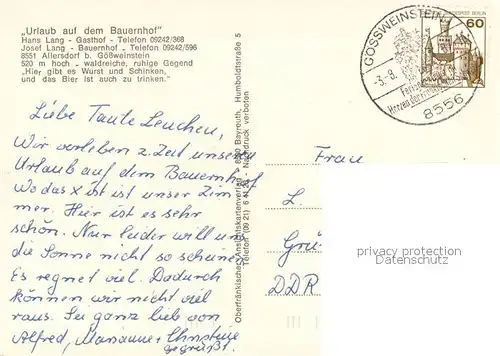 „Urlaub auf dem Bauernhof"
Hans Lang - Gasthof - Telefon 09242/368
Josef Lang - Bauernhof - Telefon 09242/596
8551 Allersdorf b. Gößweinstein
520 m hoch - waldreiche, ruhige Gegend
"Hier gibt es Wurst und Schinken,
und das Bier ist auch zu trinken."
Liebe Tante Lenchen,
Wir verleben z. Zeit unseren
Urlaub auf dem Bauernhof
Wo das X ist ist unser Zim
mer. Hier ist es sehr
schön. Nur leider will uns
die Sonne nicht so scheinen
Es regnet viel. Dadurch
können wir nicht viel
raus. Sei ganz lieb von
Alfred, Marianne + Christine
gegrüßt.
Oberfränkischer Ansichtskartenverlag 8580 Bayreuth, Humboldtstraße 5
Telefon (09 21) 6 41 24 - Nachdruck verboten
GÖSSWEINSTEIN
-3.-8.
Herzen der
8556
DEUTSCHE BUNDESPOST BERLIN
60
Frau
L.
Grü
DDR
privacy protection
Datenschutz